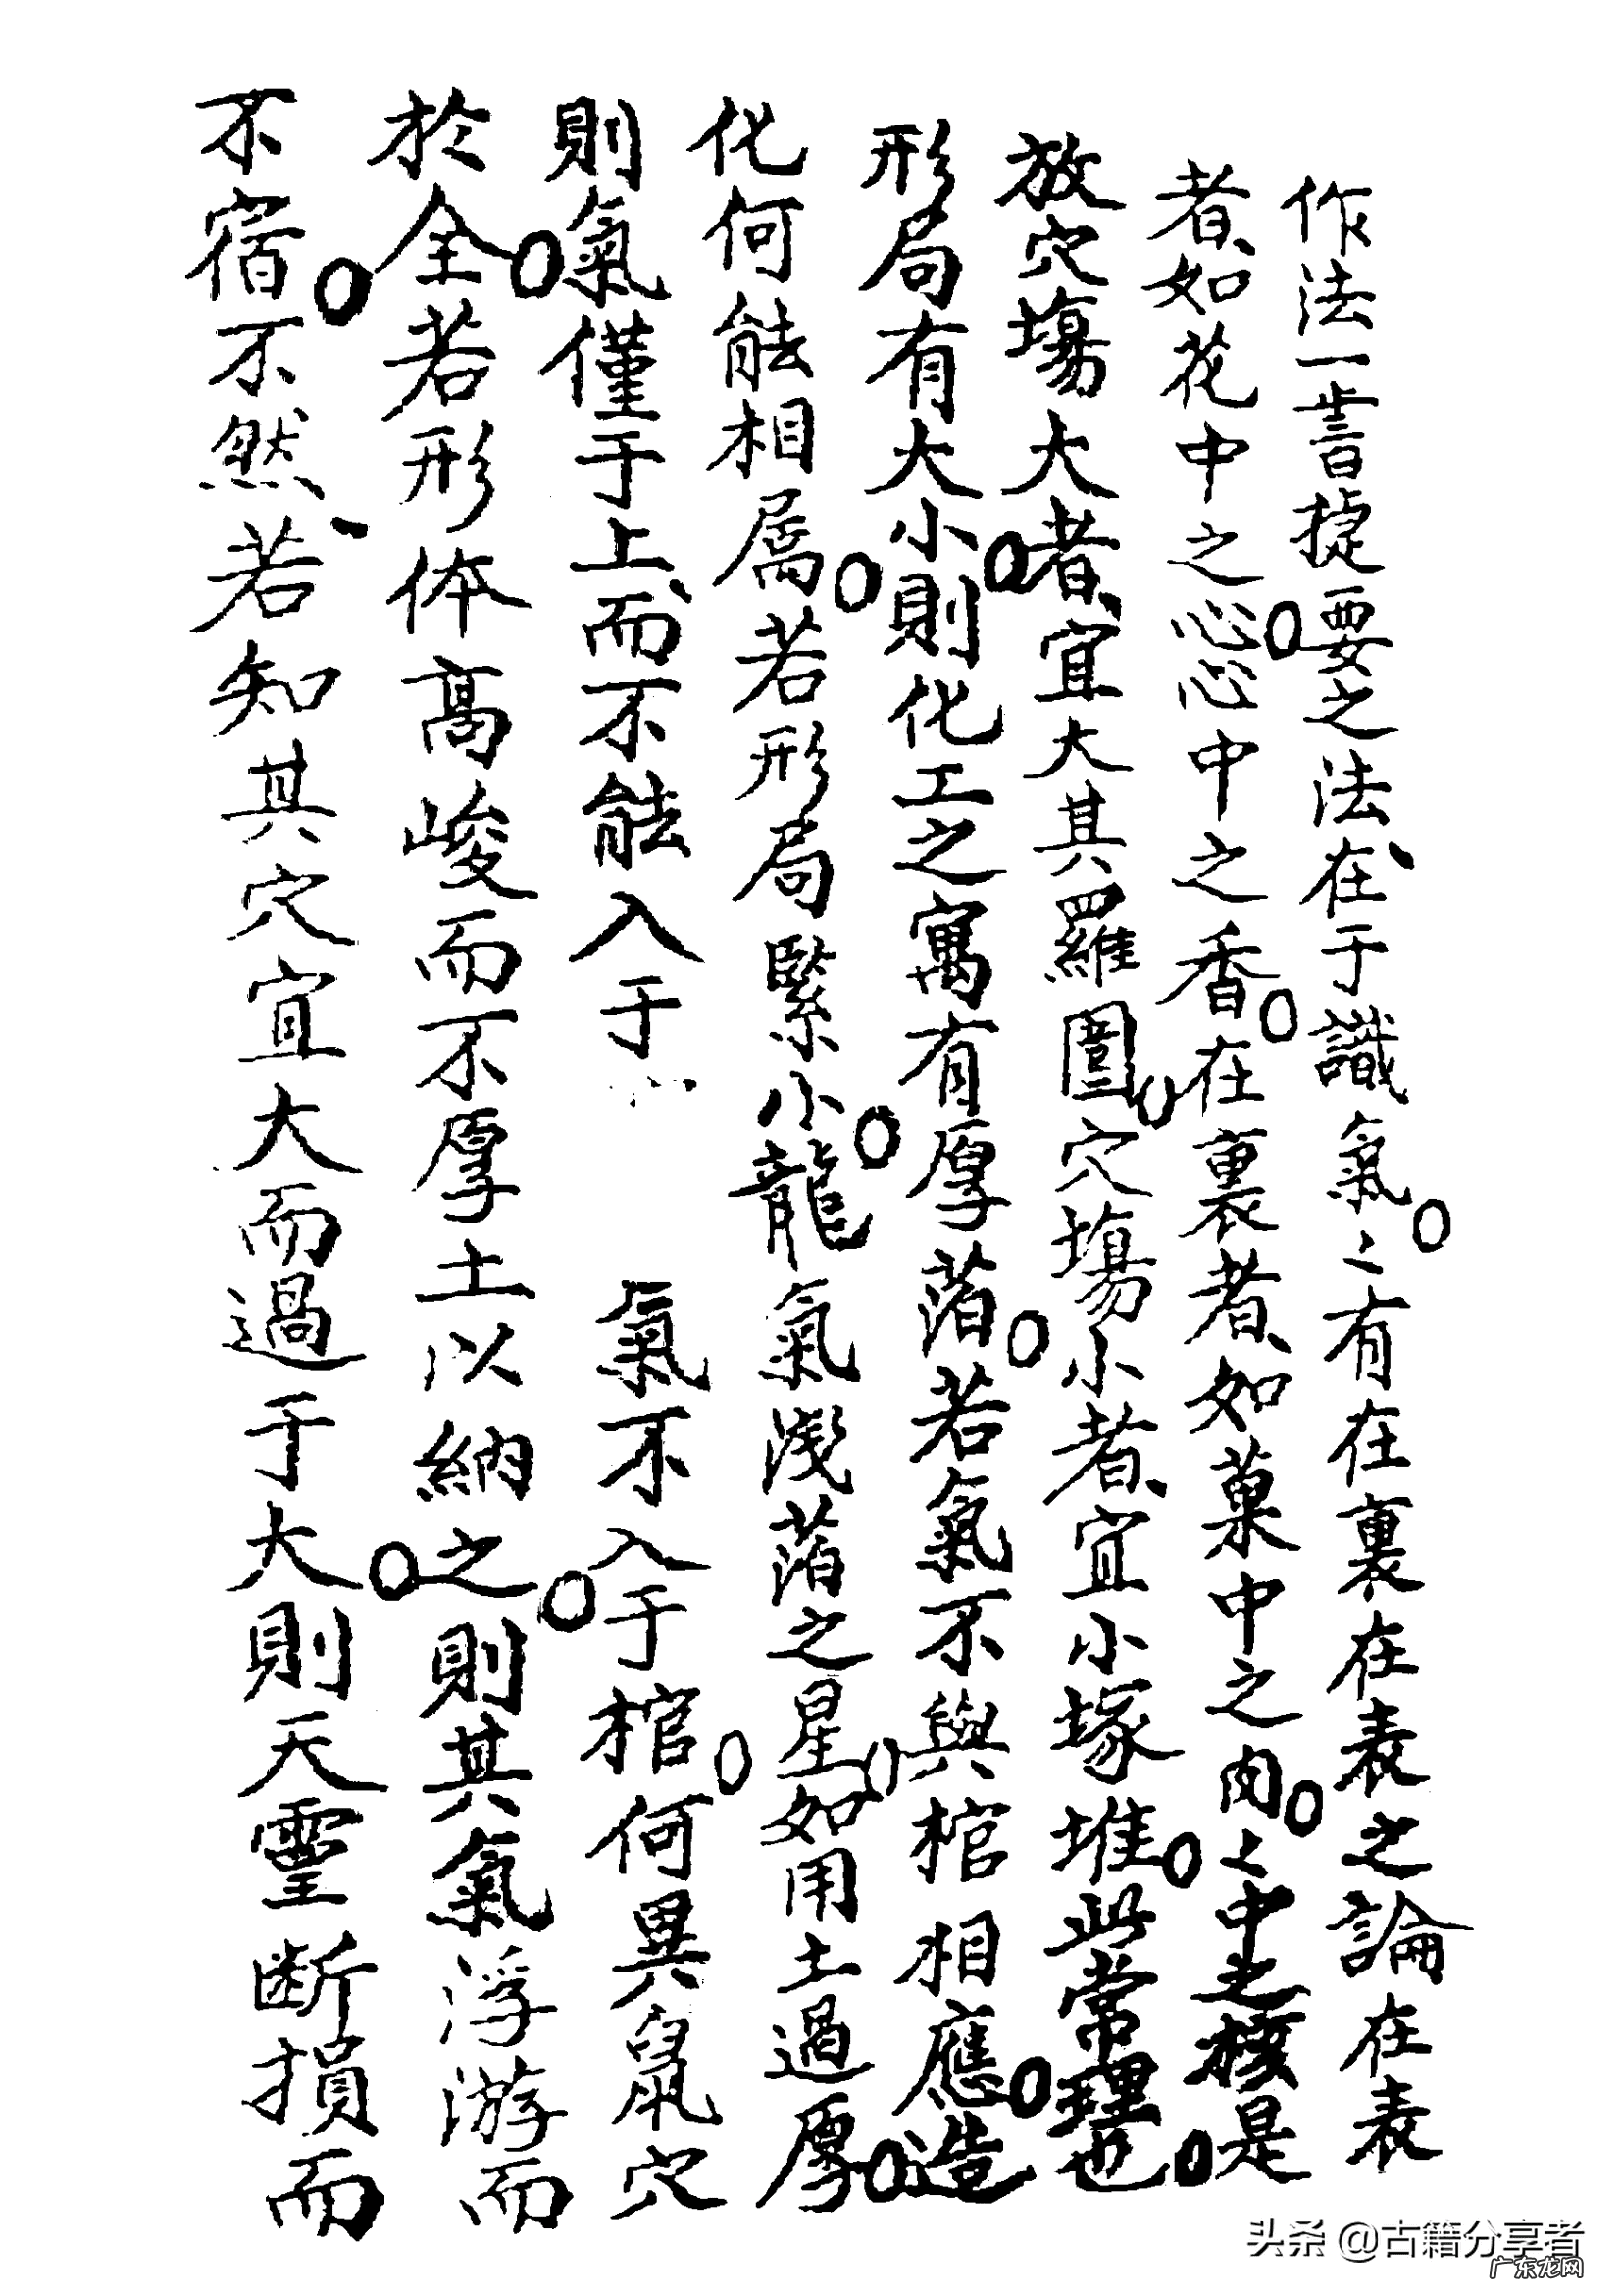 作法一書捷要之法、在于識氣。〻有在裏在表之論在表
者、如花中之心。心中之香。在裏者、如菓中之肉。〻中之核是
放穴塲大者、宜大其羅圍。穴塲小者、宜小塚堆。此常理也。
形局有大小。則化工之寓有厚萡。若氣不與棺相應。造
化何能相属。若形局緊小。龍氣淺萡之星。如用土過厚。
則氣僅于上、而不能入于 氣不入于棺。何異鼠穴
於全。若形体高峻而不厚土以納之。則其氣浮游而
不宿。不然、若知其穴宜大而過于大。則天靈断損而
头条 @古籍分享者
广东龙网